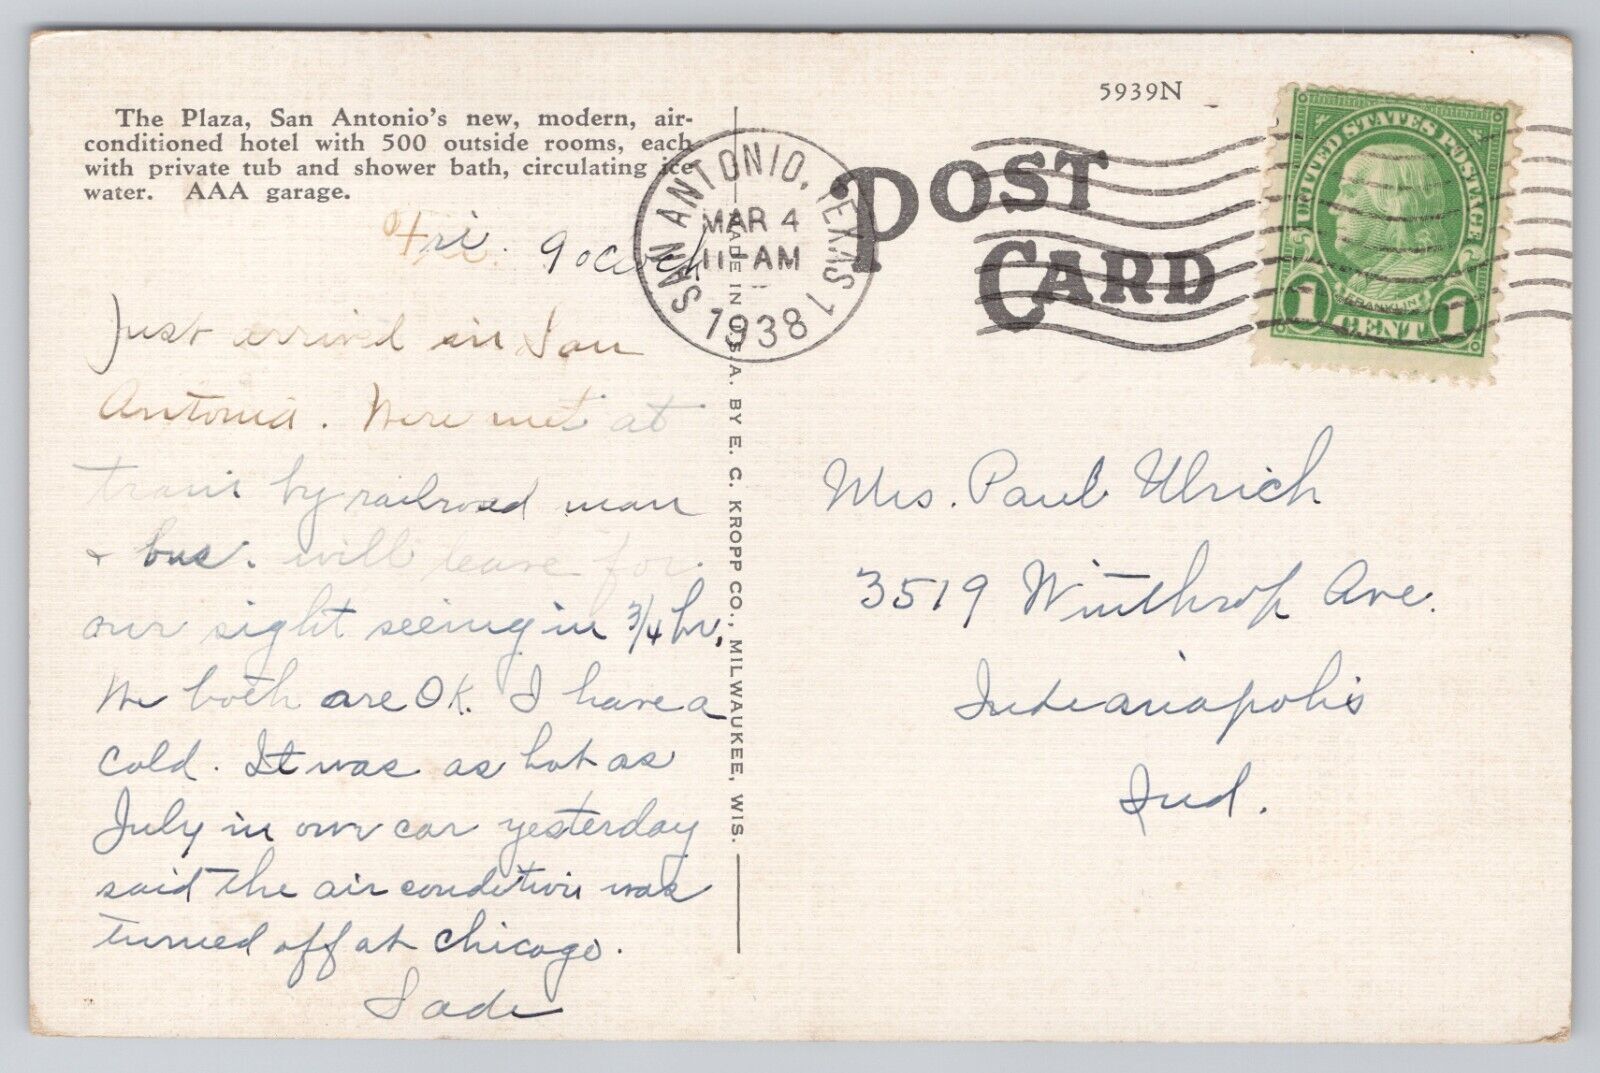 5939N
The Plaza, San Antonio's new, modern, air-
conditioned hotel with 500 outside rooms, each
with private tub and shower bath, circulating ice
water. AAA garage.
SAN ANTONIO, TEXAS 1
MAR 4
11-AM
1938
POST
CARD
UNITED STATES POSTAGE
FRANKLIN
1 CENT 1
Fri. 9 oclock
Just arrived in San
Antonio. Were met at
train by railroad man
+ bus. will leave for
our sight seeing in 3/4 hr.
We both are OK. I have a
cold. It was as hot as
July in our car yesterday
said the air condition was
turned off at Chicago.
Sade
MADE IN U.S.A. BY E. C. KROPP CO., MILWAUKEE, WIS.
Mrs. Paul Ulrich
3519 Winthrop Ave.
Indianapolis
Ind.